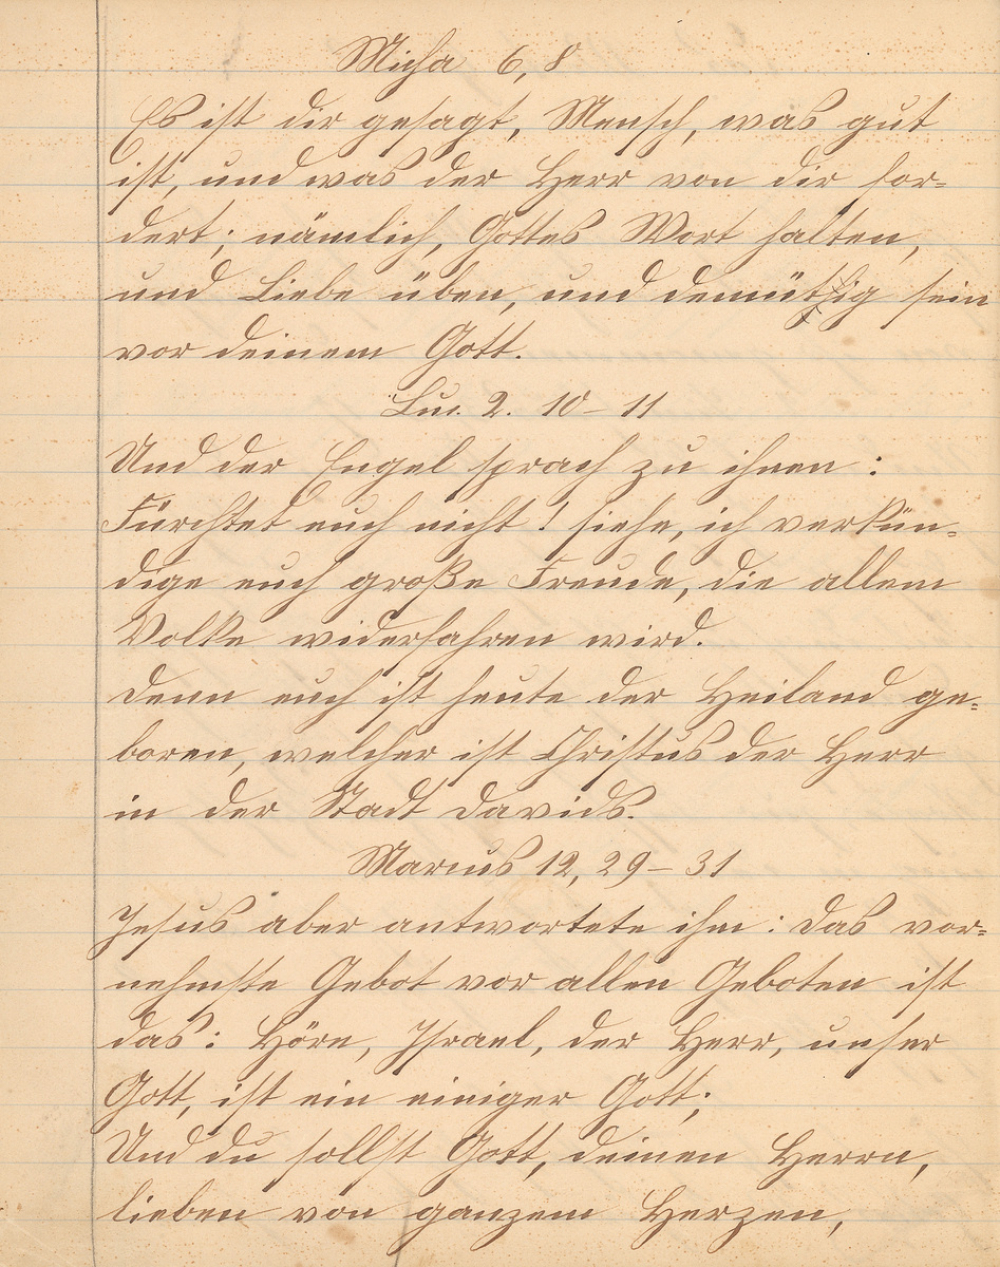 Micha 6, 8
Es ist dir gesagt, Mensch, was gut
ist, und was der Herr von dir for=
dert; nämlich, Gottes Wort halten,
und Liebe üben, und demütig sein
vor deinem Gott.
Luc. 2. 10-11
Und der Engel sprach zu ihnen:
Fürchtet euch nicht! siehe, ich verkün=
dige euch große Freude, die allem
Volke widerfahren wird.
denn euch ist heute der Heiland ge=
boren, welcher ist Christus der Herr
in der Stadt Davids.
Marcus 12, 29-31
Jesus aber antwortete ihm: das vor=
nehmste Gebot vor allen Geboten ist
das: Höre, Israel, der Herr, unser
Gott, ist ein einiger Gott;
Und du sollst Gott, deinen Herrn,
lieben von ganzem Herzen,